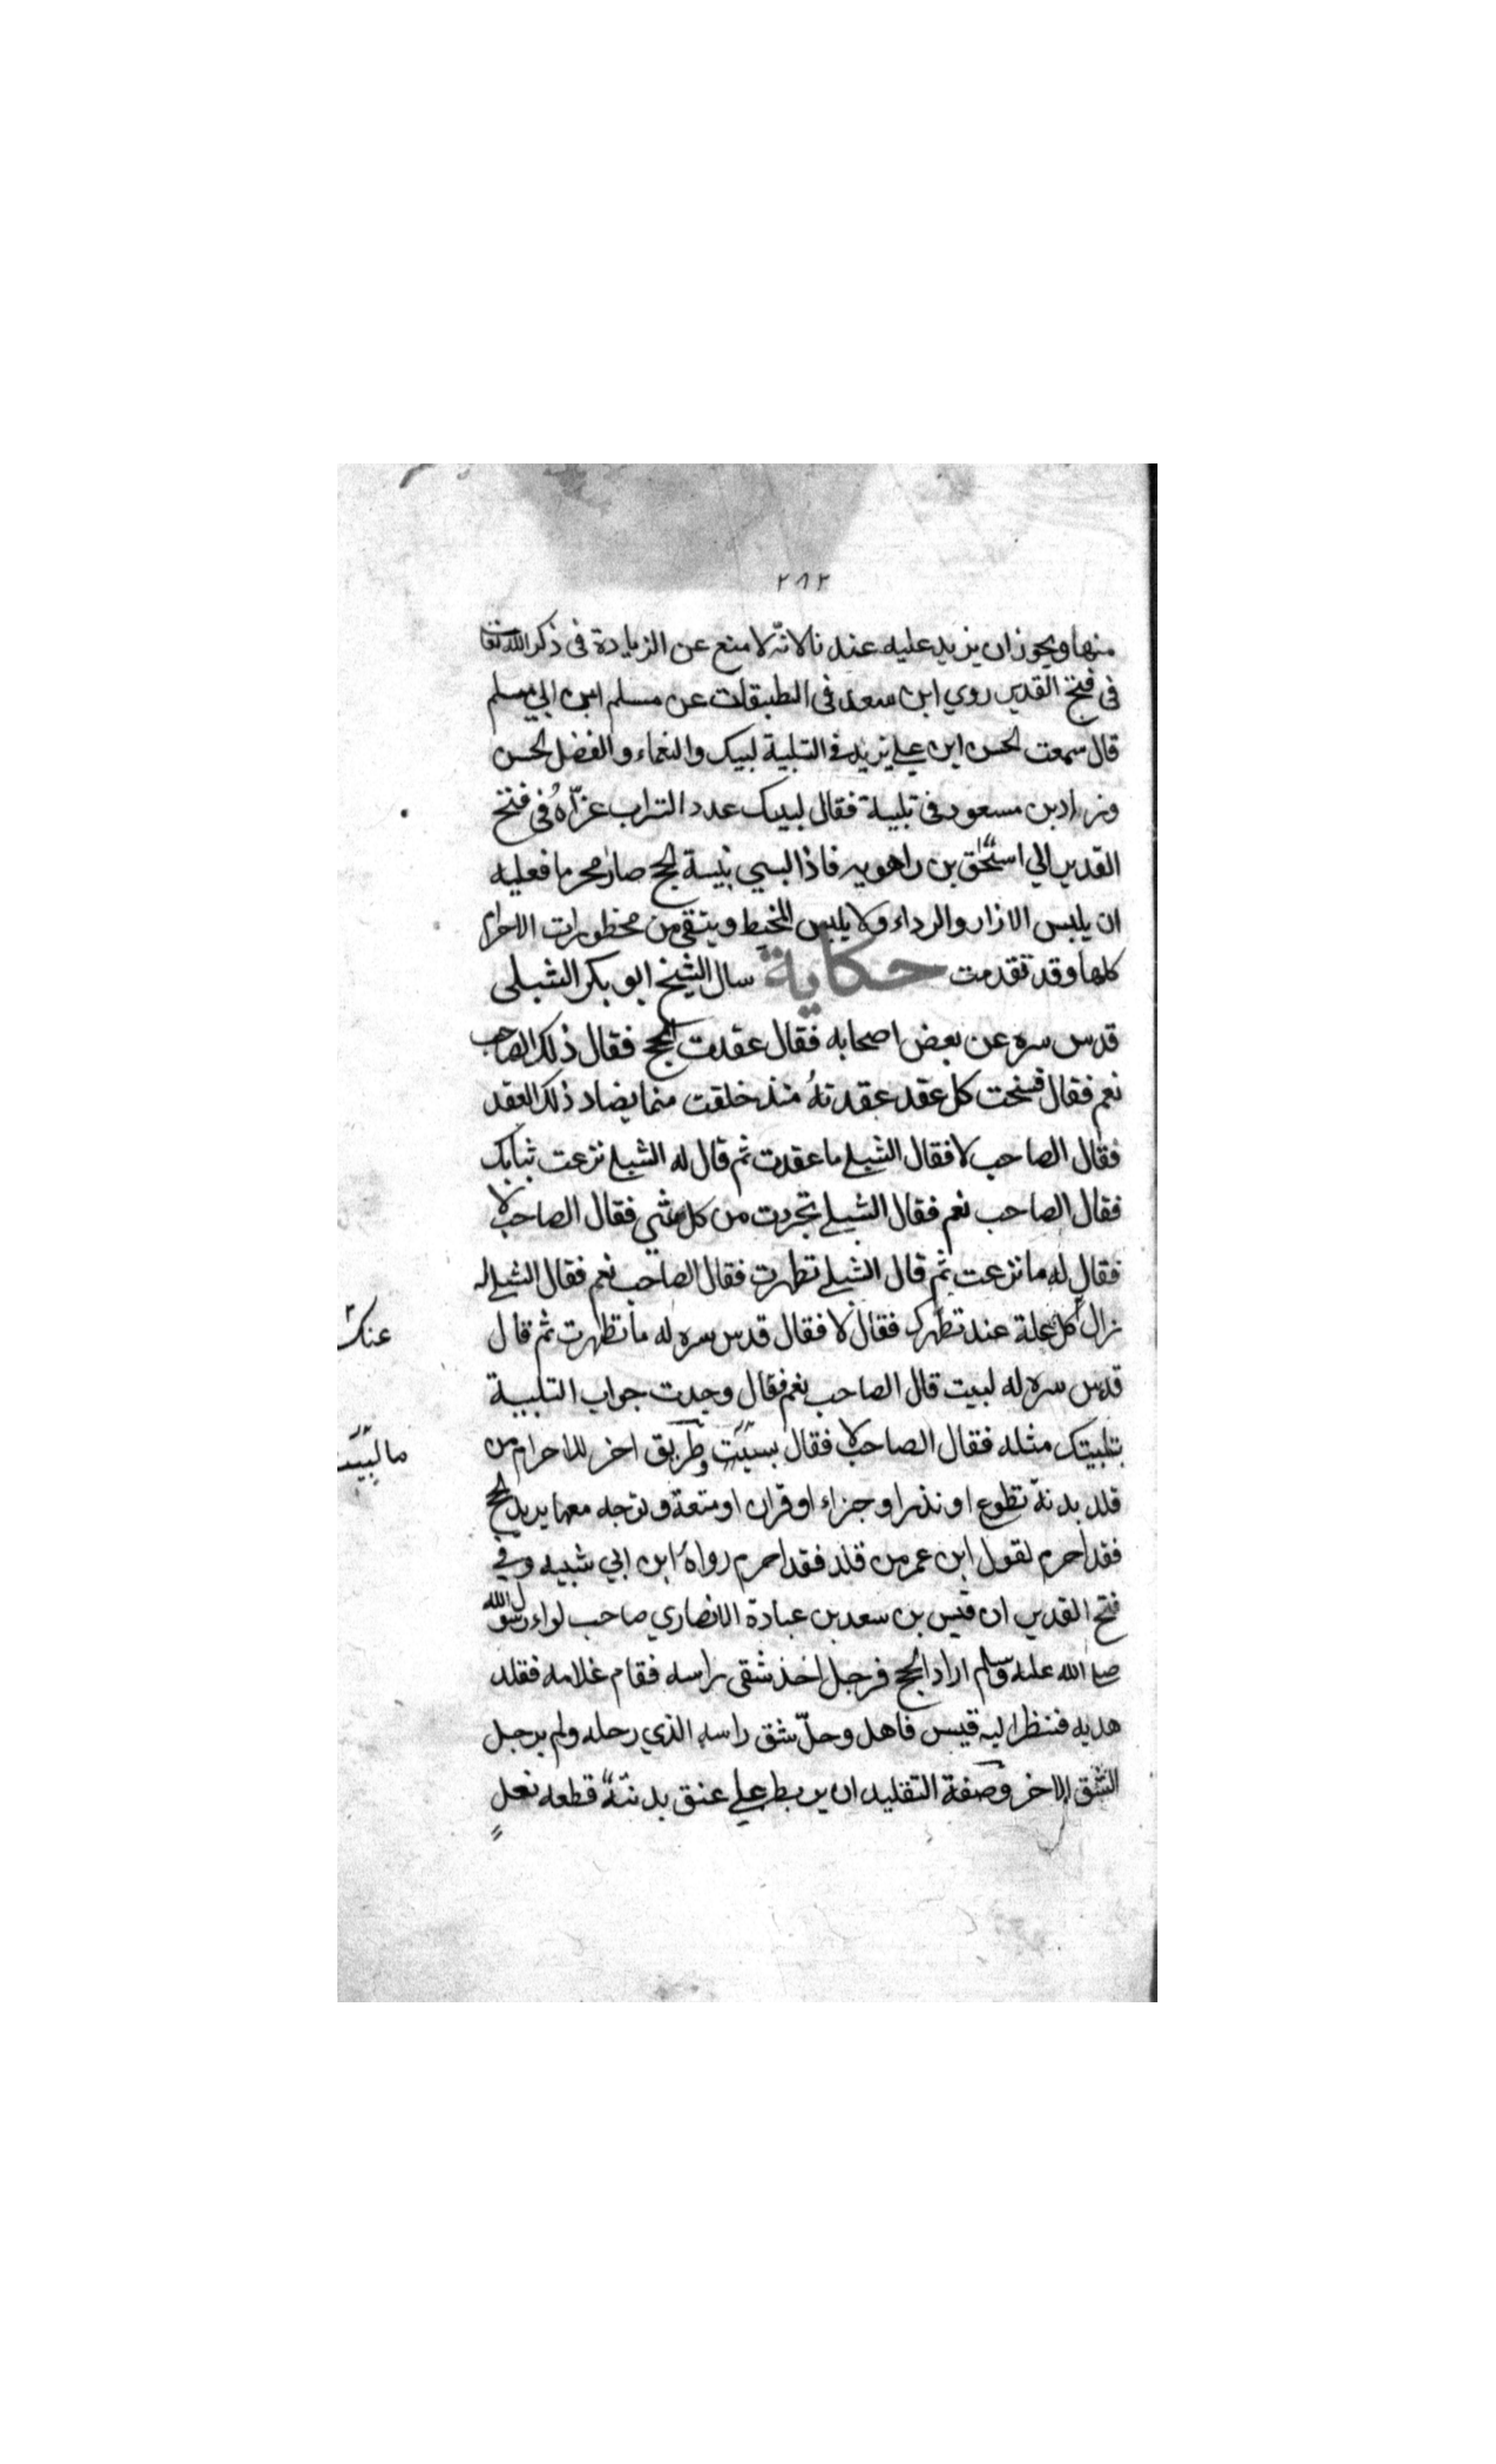 ٢٨٢
منها ويجوز ان يزيد عليه عندنا لانّه لا منع عن الزيادة فى ذكر الله تعالى
فى فتح القدير روي ابن سعد فى الطبقات عن مسلم ابن ابي مسلم
قال سمعت الحسن ابن علي يزيد في التلبية لبيك والنعماء والفضل الحسن
وزاد بن مسعود فى تلبية فقال لبيك عدد التراب عزّاهُ فى فتح
القدير الي اسحٰق بن راهويه فاذا لبسي بنيسة الحج صار محرما فعليه
ان يلبس الازار والرداء ولا يلبس المخيط ويتقي من محظورات الاحرام
كلها وقد تقدمت حكاية سال الشيخ ابو بكر الشبلى
قدس سره عن بعض اصحابه فقال عقدت الحج فقال ذلك الصاحب
نعم فقال فسخت كل عقد عقدتهُ منذ خلقت مما يضاد ذلك العقد
فقال الصاحب لا فقال الشبلي ما عقدت ثم قال له الشبلي نزعت ثيابك
فقال الصاحب نعم فقال الشبلي تجردت من كل شي فقال الصاحب لا
فقال له ما نزعت ثم قال الشبلي تطهرت فقال الصاحب نعم فقال الشبلي له
زال كل علة عند تطهرك فقال لا فقال قدس سره له ما تطهرت ثم قال
عنك
قدس سره له لبيت قال الصاحب نعم فقال وجدت جواب التلبية
بتلبيتك مثله فقال الصاحب لا فقال بسيت وطريق اخر للاحرام من
ما لبيت
قلد بدنة تطوع او نذر او جزاء او قران او متعة وتوجه معها يريد الحج
فقد احرم لقول ابن عمر من قلد فقد احرم رواهُ ابن ابي شبيه وفي
فتح القدير ان قيس بن سعد بن عبادة الانصاري صاحب لواء رسول الله
صلى الله عليه وسلم اراد الحج فرجل اخذ شقى راسه فقام غلامه فقلد
هديه فنظر اليه قيس فاهل وحلّ شق راسه الذي رحله ولم يرجل
الشق الاخر وصفة التقليد ان يربط علي عنق بدنته قطعه نعلٍ